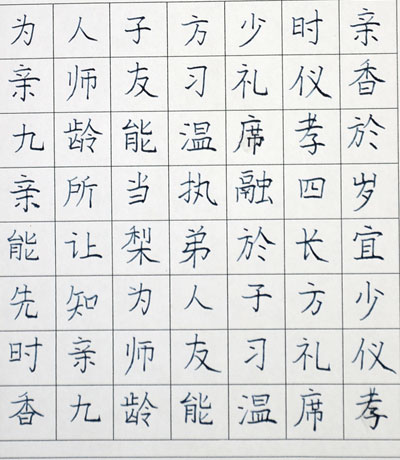 为人子方少时亲
亲师友习礼仪香
九龄能温席孝於
亲所当执融四岁
能让梨弟於长宜
先知为人子方少
时亲师友习礼仪
香九龄能温席孝